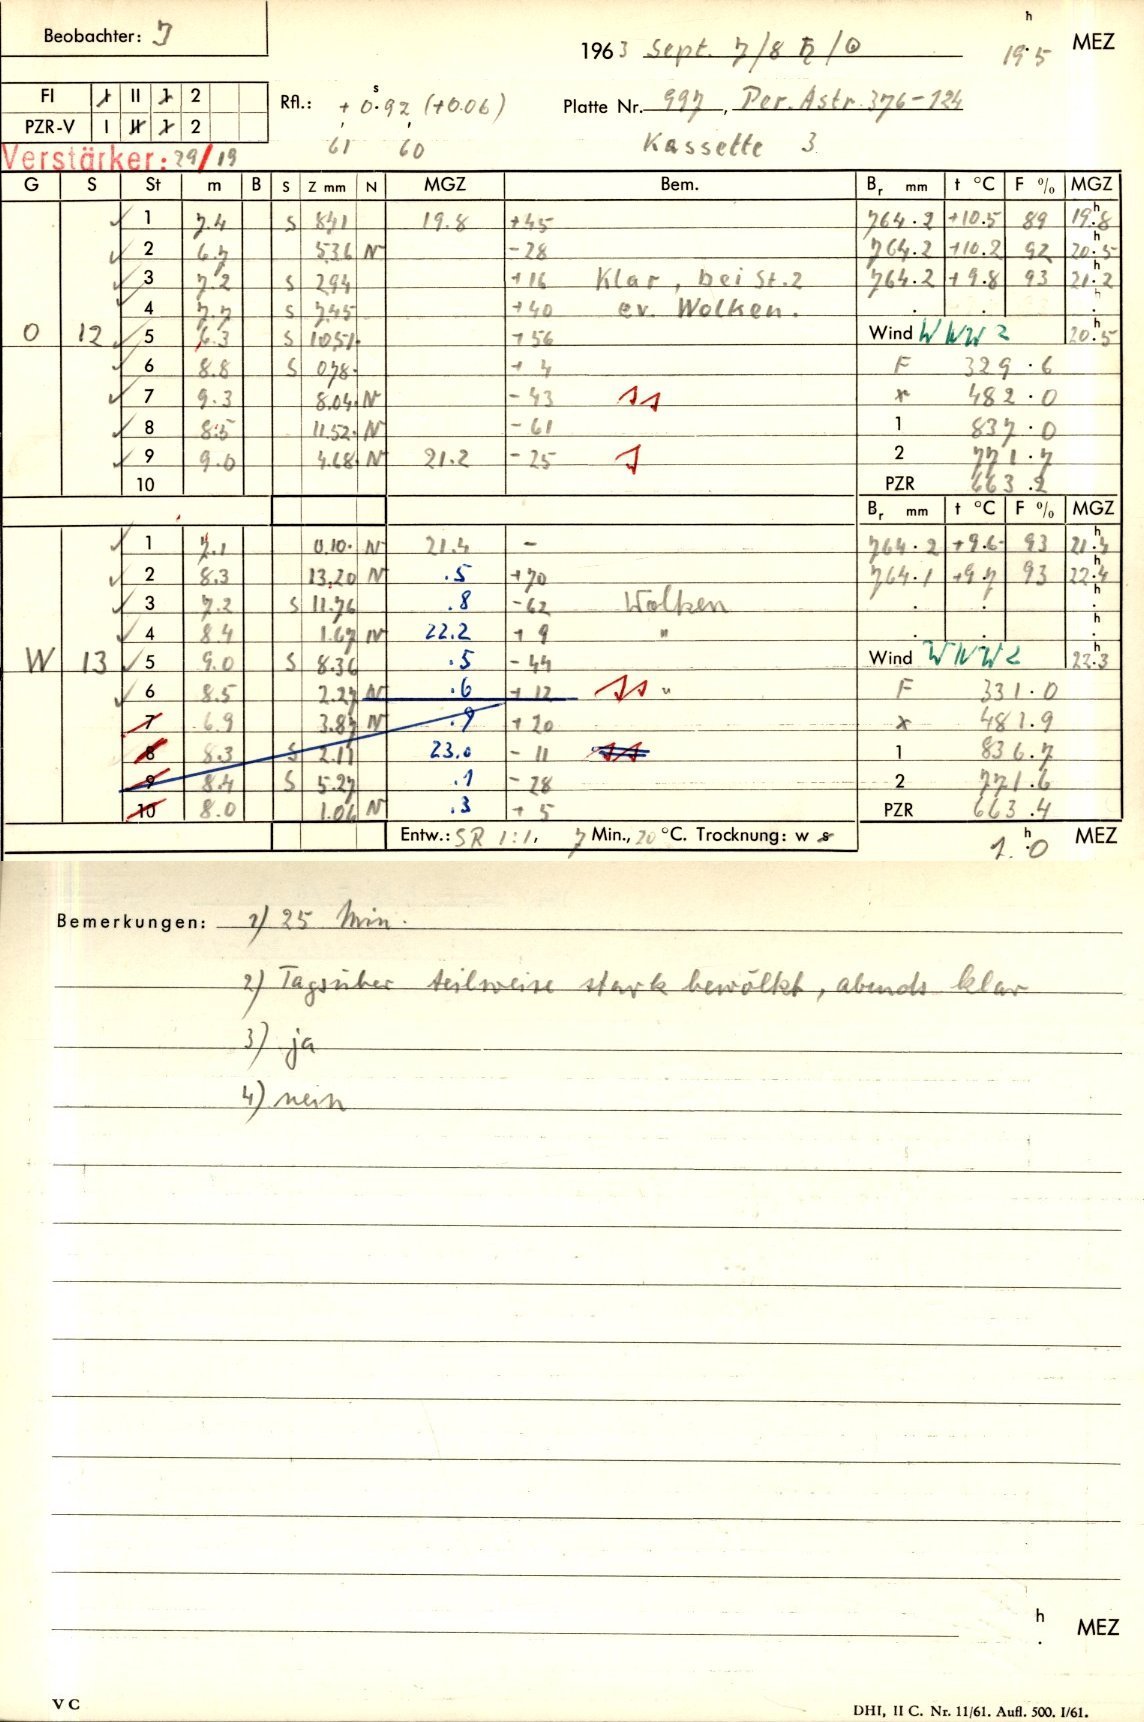 Beobachter: J
1963 Sept. 7/8 ♄/☉ 19.5 h MEZ
FI 1 II 1 2
PZR-V I II 1 2
Rfl.: + 0.92 s (+0.06)
61 60
Platte Nr. 997, Per. Astr. 376-124
Kassette 3
Verstärker: 29/19
G S St m B S Z mm N MGZ Bem. Br mm t °C F % MGZ
1 7.4 S 8.41 19.8 +45 764.2 +10.5 89 19.8 h
2 6.7 5.36 N -28 764.2 +10.2 92 20.5 h
3 7.2 S 2.94 +16 Klar, bei St. 2 764.2 +9.8 93 21.2 h
4 7.7 S 7.45 +40 ev. Wolken. h
O 12 5 6.3 S 10.51 +56 Wind WNW 2 20.5 h
6 8.8 S 0.78 + 4 F 329.6
7 9.3 8.04 N -43 JJ x 482.0
8 8.5 11.52 N -61 1 837.0
9 9.0 4.68 N 21.2 -25 J 2 771.7
10 PZR 663.2
Br mm t °C F % MGZ
1 7.1 0.10 N 21.4 - 764.2 +9.6 93 21.4 h
2 8.3 13.20 N .5 +70 764.1 +9.7 93 22.4 h
3 7.2 S 11.76 .8 -62 Wolken h
4 8.4 1.67 N 22.2 + 9 " h
W 13 5 9.0 S 8.36 .5 -44 Wind WNW 2 22.3 h
6 8.5 2.27 N .6 +12 JJ " F 331.0
7 6.9 3.87 N .9 +20 x 481.9
8 8.3 S 2.11 23.0 - 11 JJ 1 836.7
9 8.4 S 5.27 .1 -28 2 771.6
10 8.0 1.06 N .3 + 5 PZR 663.4
Entw.: SR 1:1, 7 Min., 20 °C. Trocknung: w s 1.0 h MEZ
Bemerkungen: 1) 25 Min.
2) Tagsüber teilweise stark bewölkt, abends klar
3) ja
4) nein
h MEZ
V C
DHI, II C. Nr. 11/61. Aufl. 500. I/61.